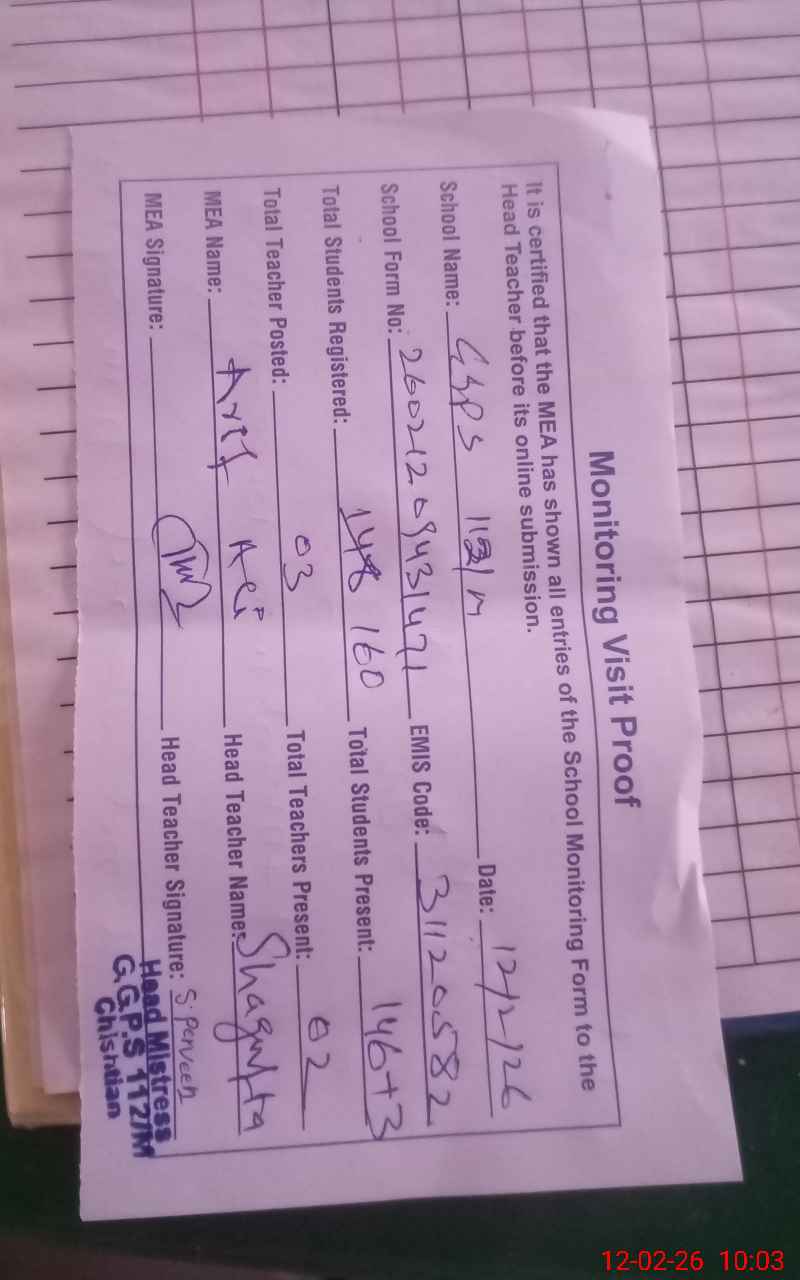 Monitoring Visit Proof
It is certified that the MEA has shown all entries of the School Monitoring Form to the
Head Teacher before its online submission.
School Name: GGPS 112/M Date: 12/2/26
School Form No: 26021209431471 EMIS Code: 31120582
Total Students Registered: 148 160 Total Students Present: 146+3
Total Teacher Posted: 03 Total Teachers Present: 02
MEA Name: Arif Ali Head Teacher Name: Shagufta
MEA Signature: Head Teacher Signature: S. Perveen
Head Mistress
G.G.P.S 112/M
Chishtian
12-02-26 10:03